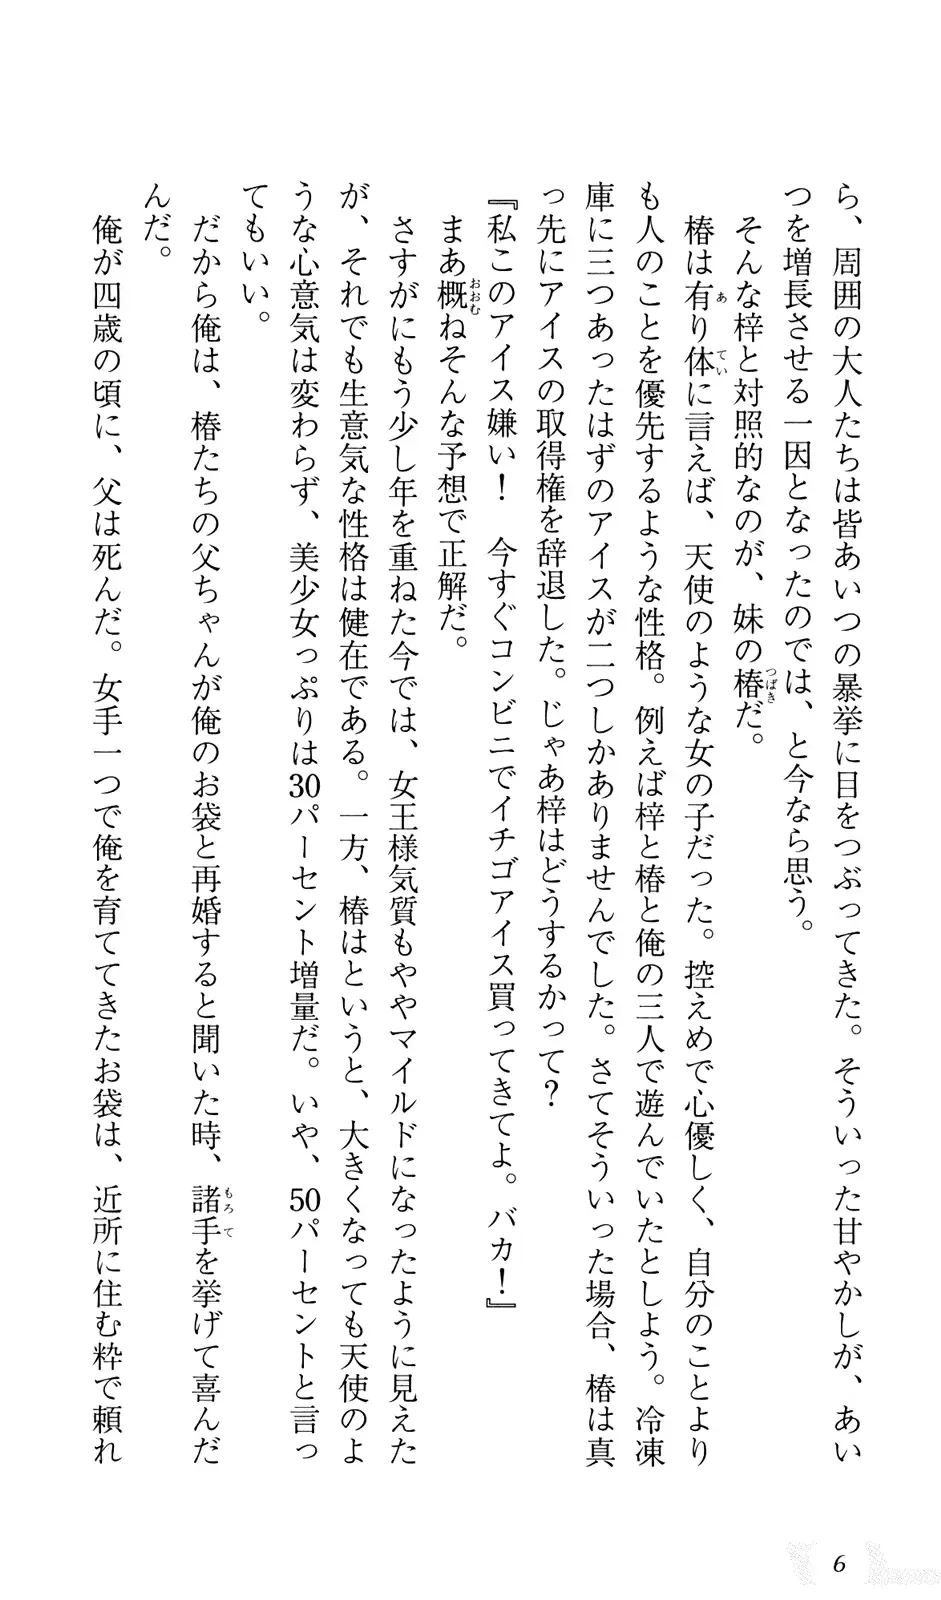 ら、周囲の大人たちは皆あいつの暴挙に目をつぶってきた。そういった甘やかしが、あい
つを増長させる一因となったのでは、と今なら思う。
そんな梓と対照的なのが、妹の椿だ。
椿は有り体に言えば、天使のような女の子だった。控えめで心優しく、自分のことより
も人のことを優先するような性格。例えば梓と椿と俺の三人で遊んでいたとしよう。冷凍
庫に三つあったはずのアイスが二つしかありませんでした。さてそういった場合、椿は真
っ先にアイスの取得権を辞退した。じゃあ梓はどうするかって？
『私このアイス嫌い！　今すぐコンビニでイチゴアイス買ってきてよ。バカ！』
まあ概ねそんな予想で正解だ。
さすがにもう少し年を重ねた今では、女王様気質もややマイルドになったように見えた
が、それでも生意気な性格は健在である。一方、椿はというと、大きくなっても天使のよ
うな心意気は変わらず、美少女っぷりは30パーセント増量だ。いや、50パーセントと言っ
てもいい。
だから俺は、椿たちの父ちゃんが俺のお袋と再婚すると聞いた時、諸手を挙げて喜んだ
んだ。
俺が四歳の頃に、父は死んだ。女手一つで俺を育ててきたお袋は、近所に住む粋で頼れ
6